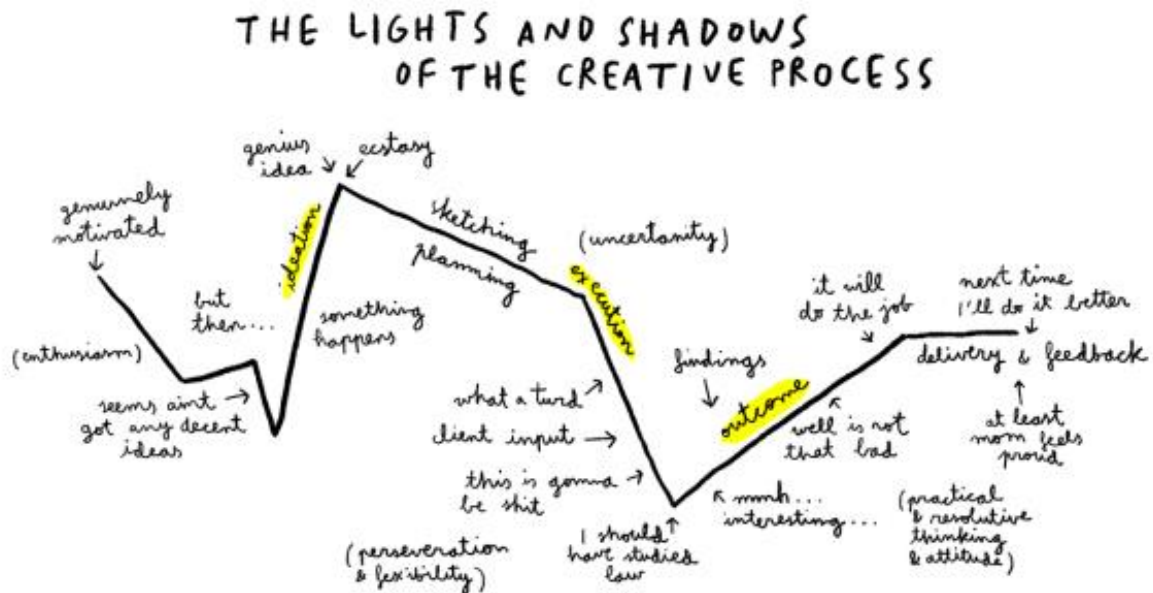 THE LIGHTS AND SHADOWS
OF THE CREATIVE PROCESS
genuinely
motivated
(enthusiasm)
seems aint
got any decent
ideas
but
then...
ideation
something
happens
genius
idea
ecstasy
sketching
planning
(uncertanity)
execution
what a turd
client input
this is gonna
be shit
(perseveration
& fexibility)
I should
have studied
law
findings
outcome
mmh...
interesting...
well is not
that bad
it will
do the job
(practical
& resolutive
thinking
& attitude)
next time
I'll do it better
delivery & feedback
at least
mom feels
proud